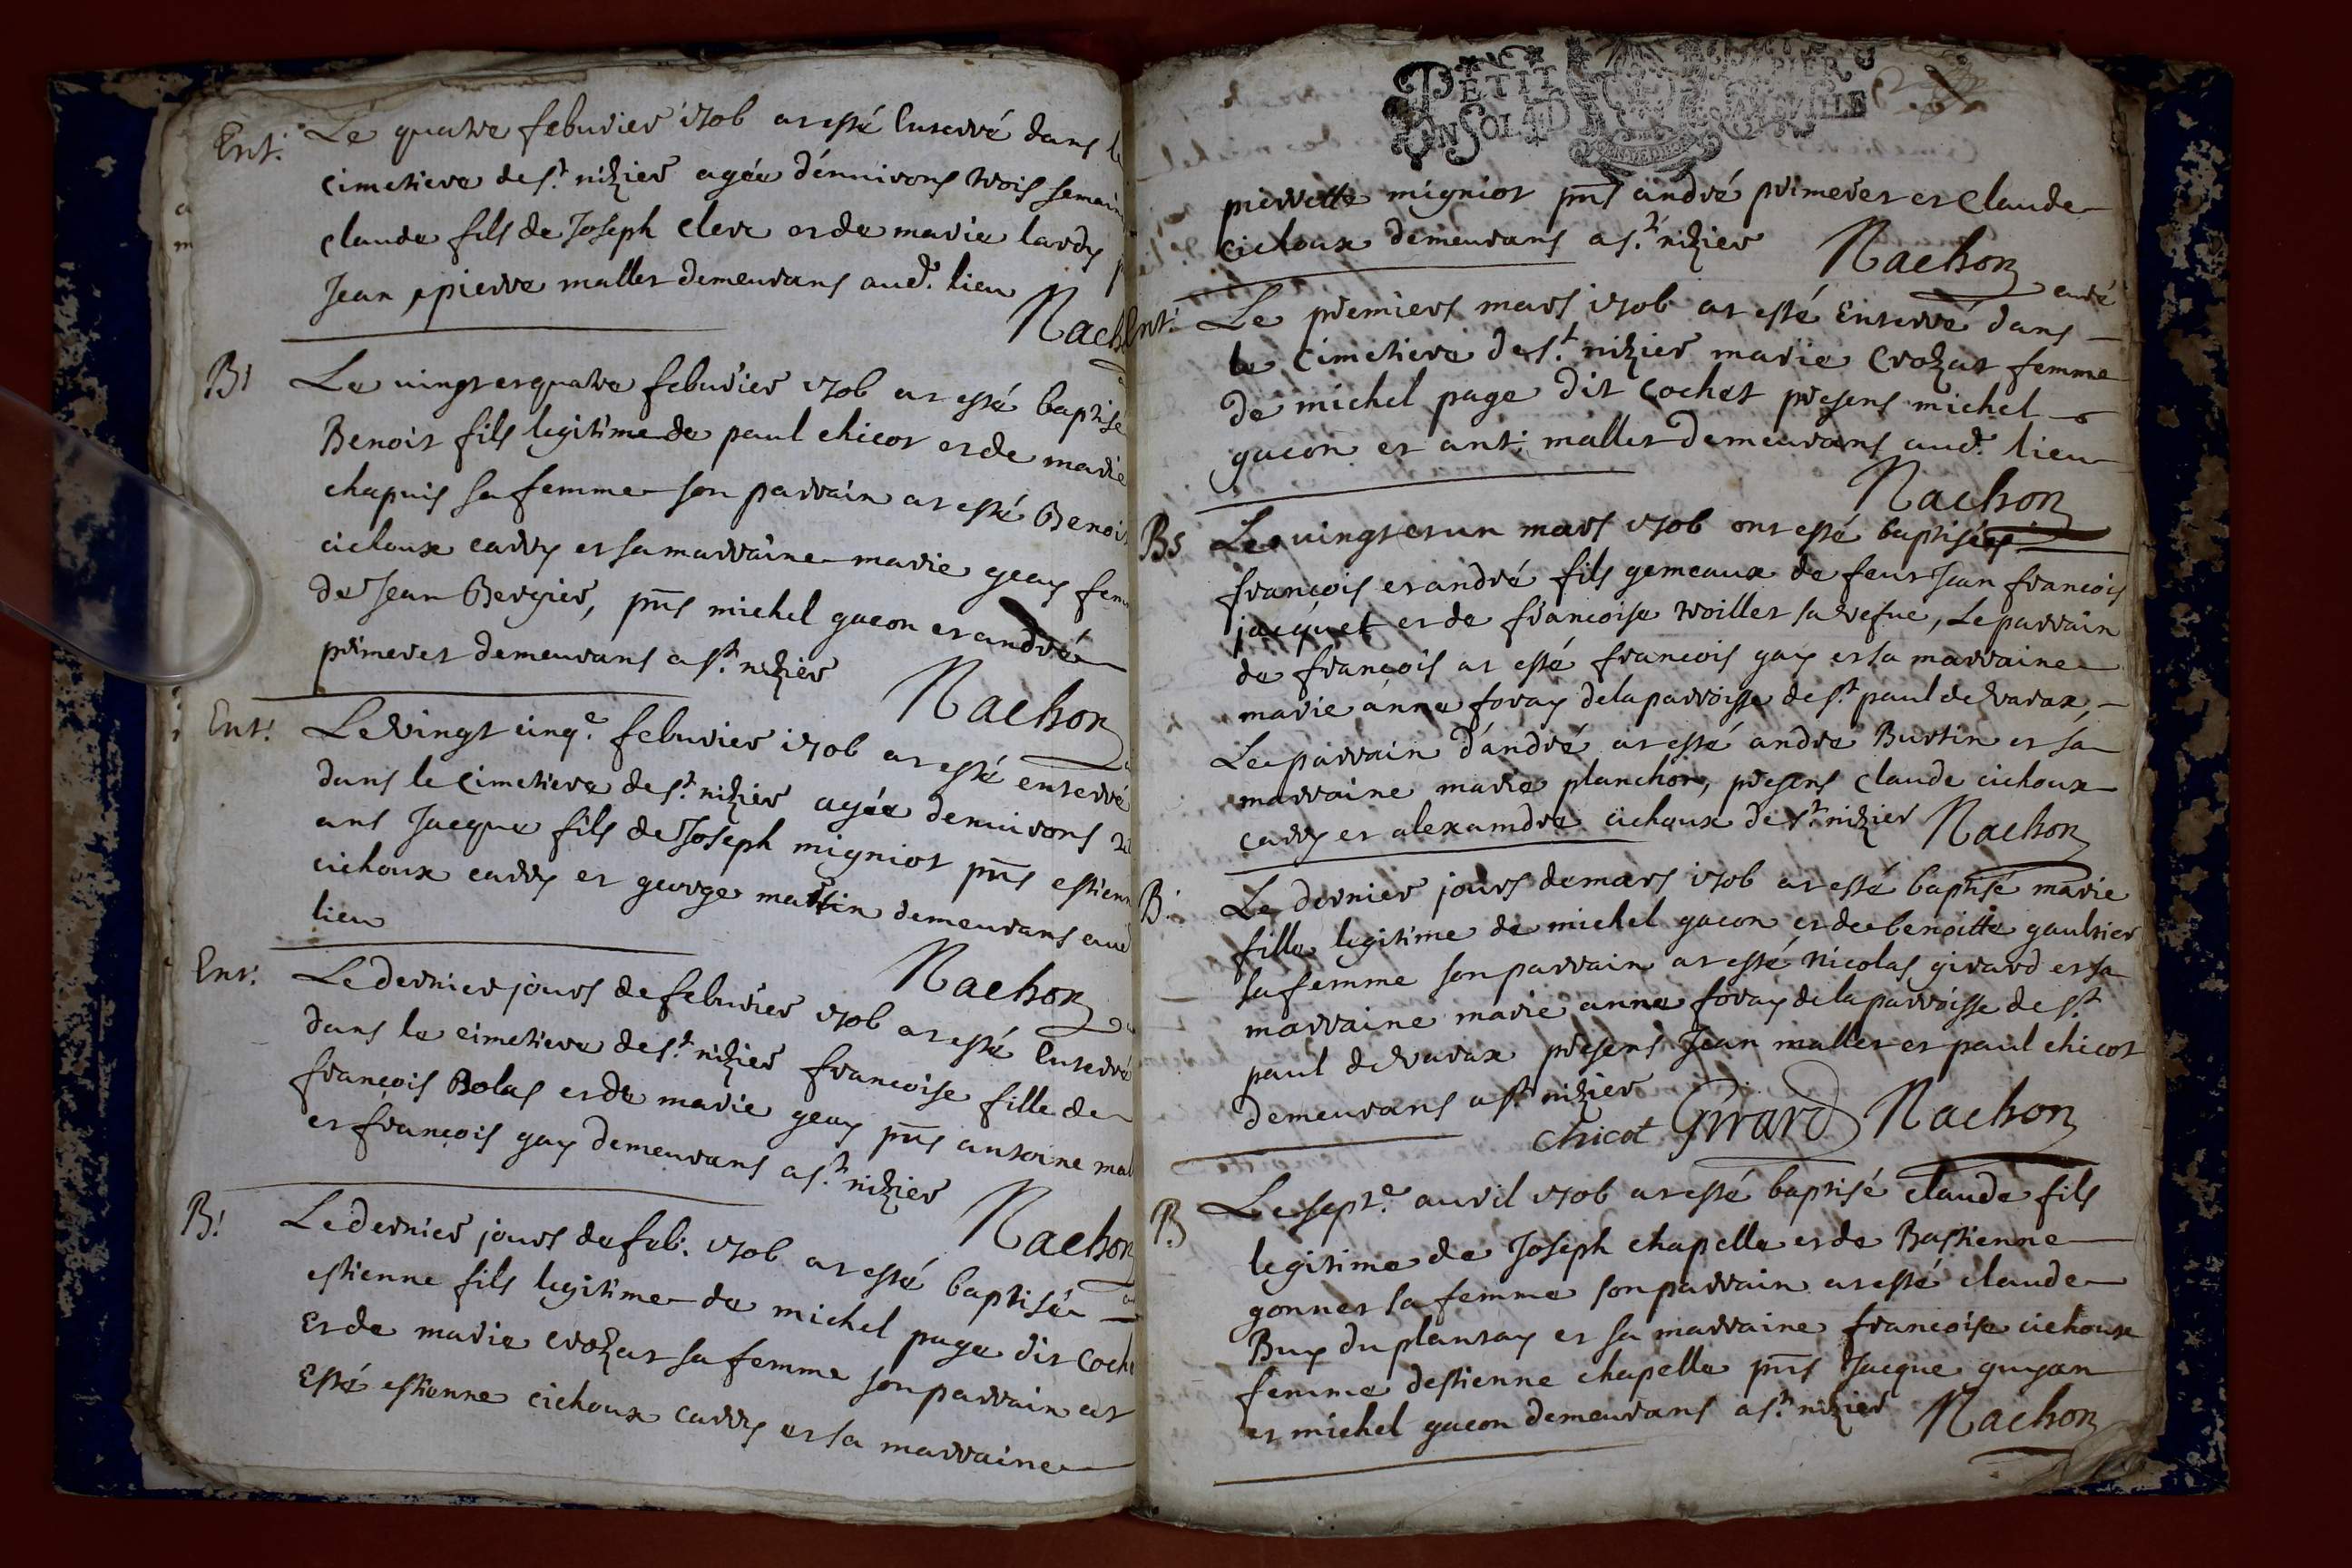 Ent. Le quatre feburier 1706 at esté Enterré dans le
cimetiere de st. nizier agée d'enuirons trois semain
claude fils de Joseph clerc et de marie lardy
Jean, pierre mallet demeurans aud. lieu
Nach
B. Le uingt et quatre febvrier 1706 at esté baptisé
Benoit fils legitime de paul chicot et de marie
chapuis sa femme son parrain at esté Benoit
cichoux carry et sa marraine marie geay fem
de Jean Bergier, pnts michel gacon et andré
primeret demeurans a st. nizier
Nachon
Ent. Le vingt cinq.e febuvier 1706 at esté enterré
dans le cimetiere de st. nizier agée denuirons
ans Jacque fils de Joseph migniot pnts estienn
cichoux carry et george martin demeurans aud
lieu
Nachon
Ent. Le dernier jours de febuvier 1706 at esté Enterré
dans le cimetiere de st. nizier francoise fille de
françois Bolas et de marie geay pnts antoine mal
et françois gay demeurans a st. nizier
Nachon
B. Le dernier jours de feb. 1706 at esté baptisé
estienne fils legitime de michel page dit Coche
et de marie crozat sa femme son parrain at
Esté estienne cichoux carry et sa marraine
PETIT PAPIER
UN SOL 4 D LA FEVILLE
pierrette migniot pnts andré primeret et claude
cichoux demeurans a st. nizier Nachon
curé
Ent. Le premiers mars 1706 at esté Enterré dans
le cimetiere de st. nizier marie crozat femme
de michel page dit Cochet presens michel
gacon et ant. mallet demeurans aud. lieu
Nachon
Bs Le uingt et un mars 1706 ont esté baptisés
françois et andré fils gemeaux de feut Jean francois
jacquet et de francoise troillet sa vefue, Le parrain
de françois at esté francois gay et sa marraine
marie anne foray de la parroisse de st. paul de varax,
Le parrain d'andré at esté andré Burtin et sa
marraine marie planchon, presens claude cichoux
carry et alexandre cichoux de st. nizier Nachon
B. Le dernier jours de mars 1706 at esté baptisé marie
fille legitime de michel gacon et de benoitte gaultier
sa femme son parrain at esté nicolas girard et sa
marraine marie anne foray de la parroisse de st.
paul de varax presens Jean mallet et paul chicot
demeurans a st. nizier
chicot Girard Nachon
B. Le sept.e auril 1706 at esté baptisé claude fils
legitime de Joseph chapelle et de Bastienne
gonnet sa femme son parrain at esté claude
Buy du plantay et sa marraine francoise cichoux
femme destienne chapelle pnts Jacque guyon
et michel gacon demeurans a st. nizier Nachon